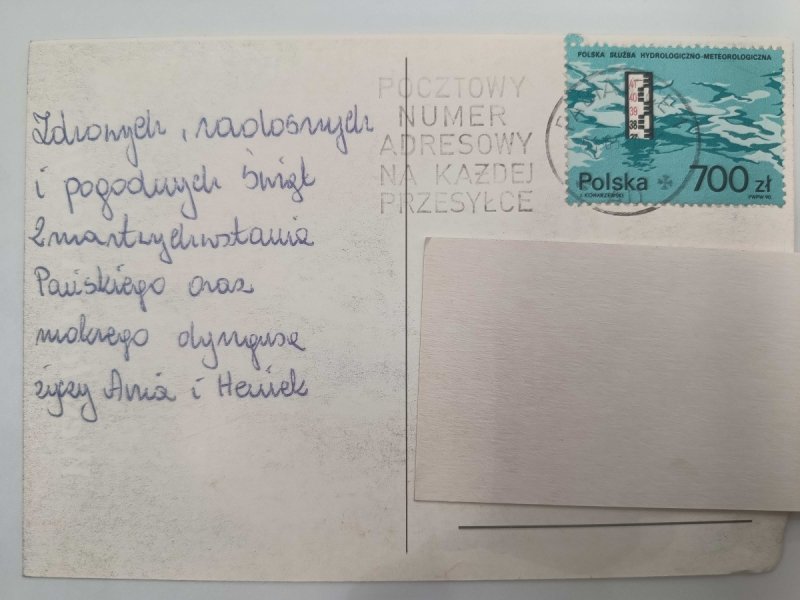 Zdrowych, radosnych
i pogodnych Świąt
Zmartwychwstania
Pańskiego oraz
mokrego dyngusa
życzy Ania i Heniek
POCZTOWY
NUMER
ADRESOWY
NA KAŻDEJ
PRZESYŁCE
POLSKA SŁUŻBA HYDROLOGICZNO-METEOROLOGICZNA
41
40
39
38
Polska 700 zł
J. KONARZEWSKI PWPW 90